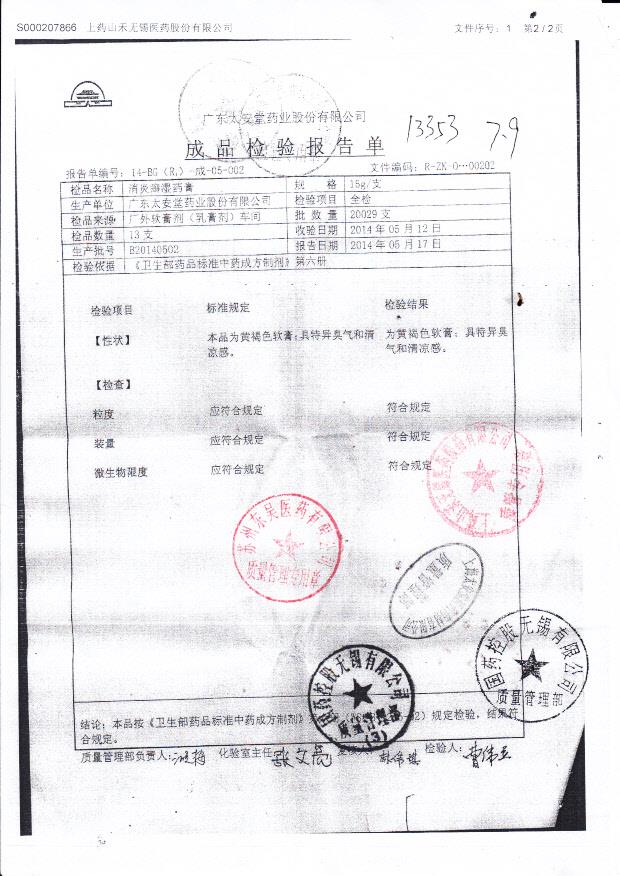 S000207866 上药山禾无锡医药股份有限公司 文件序号：1 第2/2页
广东太安堂药业股份有限公司
13353 7.9
成品检验报告单
报告单编号：14-BG（R₁）-成-05-002 文件编码：R-ZK-0-…00202
检品名称 消炎癣湿药膏 规格 15g/支
生产单位 广东太安堂药业股份有限公司 检验项目 全检
检品来源 广外软膏剂（乳膏剂）车间 批数量 20029支
检品数量 13支 收验日期 2014年05月12日
生产批号 B20140502 报告日期 2014年05月17日
检验依据 《卫生部药品标准中药成方制剂》第六册
检验项目 标准规定 检验结果
【性状】 本品为黄褐色软膏；具特异臭气和清 为黄褐色软膏；具特异臭
凉感。 气和清凉感。
【检查】
粒度 应符合规定 符合规定
装量 应符合规定 符合规定
微生物限度 应符合规定 符合规定
苏州东吴医药有限公司
质量管理专用章
质量管理部
国药控股无锡有限公司
质量管理部
国药控股无锡有限公司
质量管理部
(3)
结论：本品按《卫生部药品标准中药成方制剂》 规定检验，结果符
合规定。
质量管理部负责人： 化验室主任 张文亮 检验人：曹伟亚